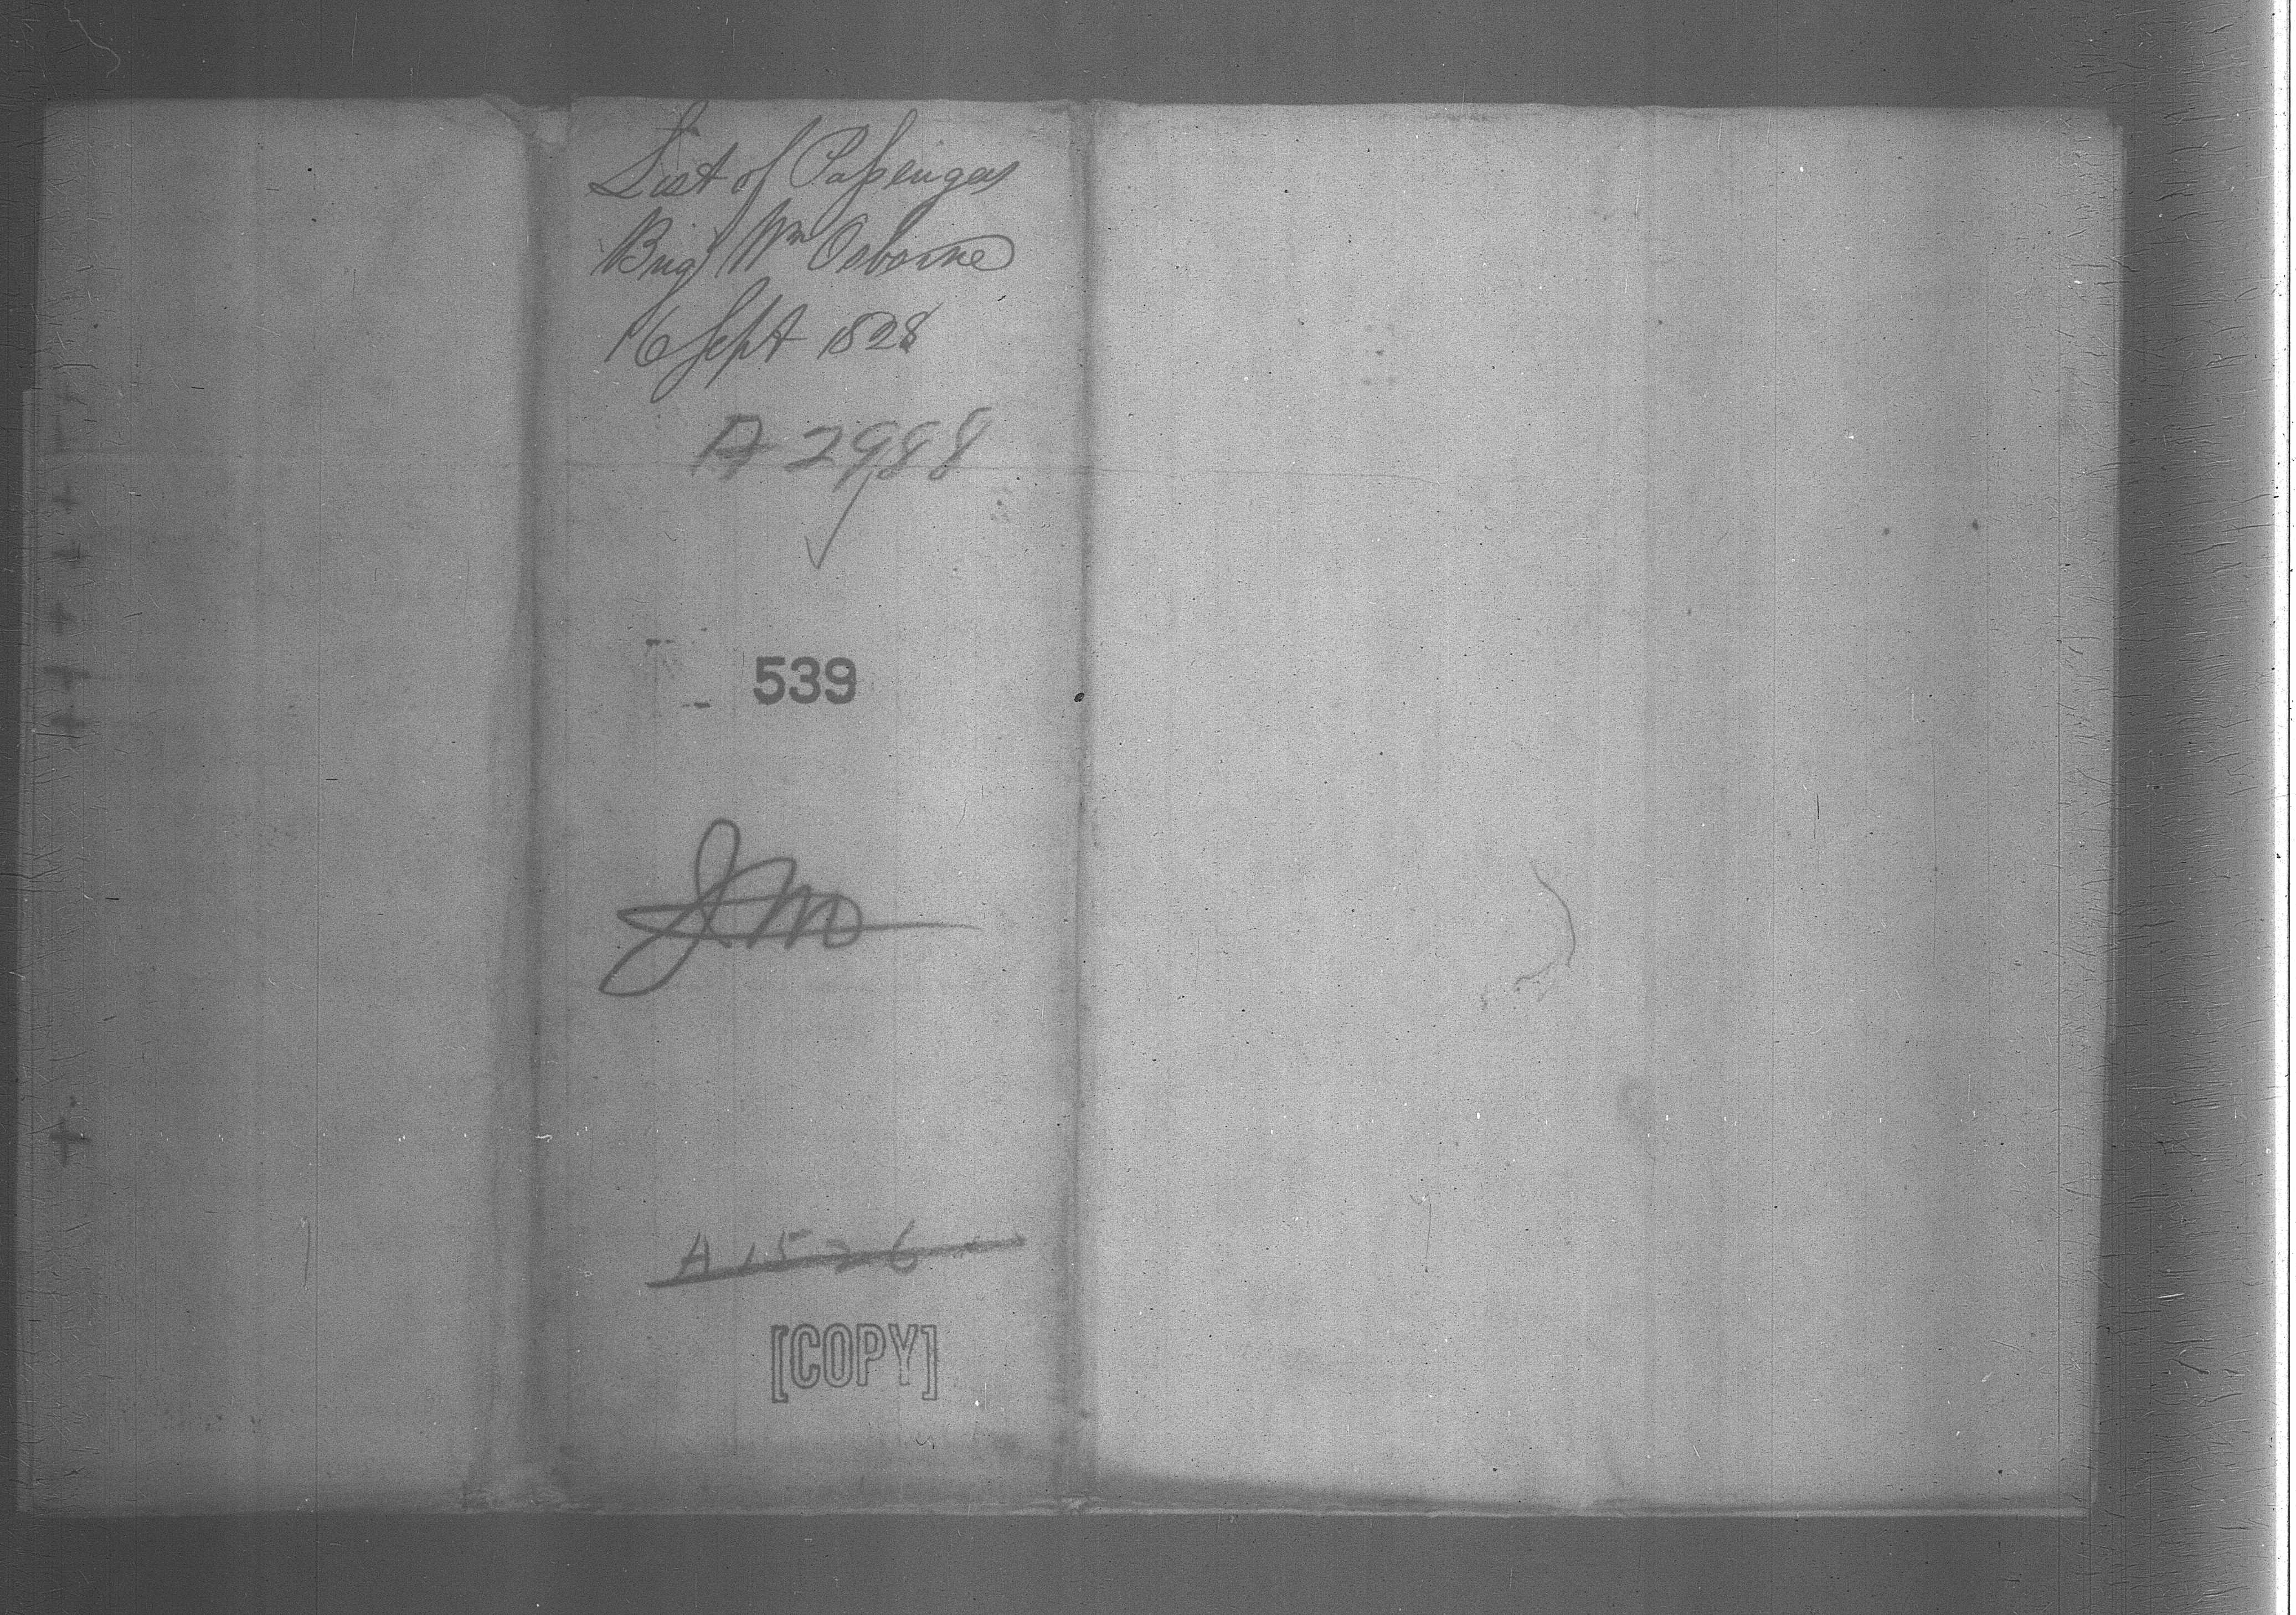 List of Passengers
Brig Wm Osborne
16 Sept 1828
A 2988
539
JM
A 1526
[COPY]